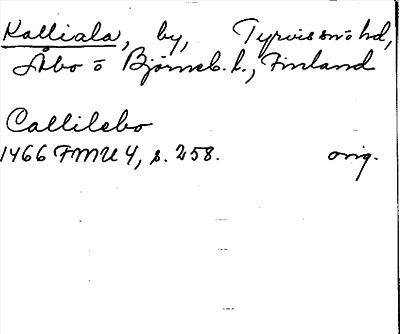 Kalliala, by, Tyrvis snö hd,
Åbo o Björneb. l., Finland
Callilebo
1466 FMU 4, s. 258. orig.